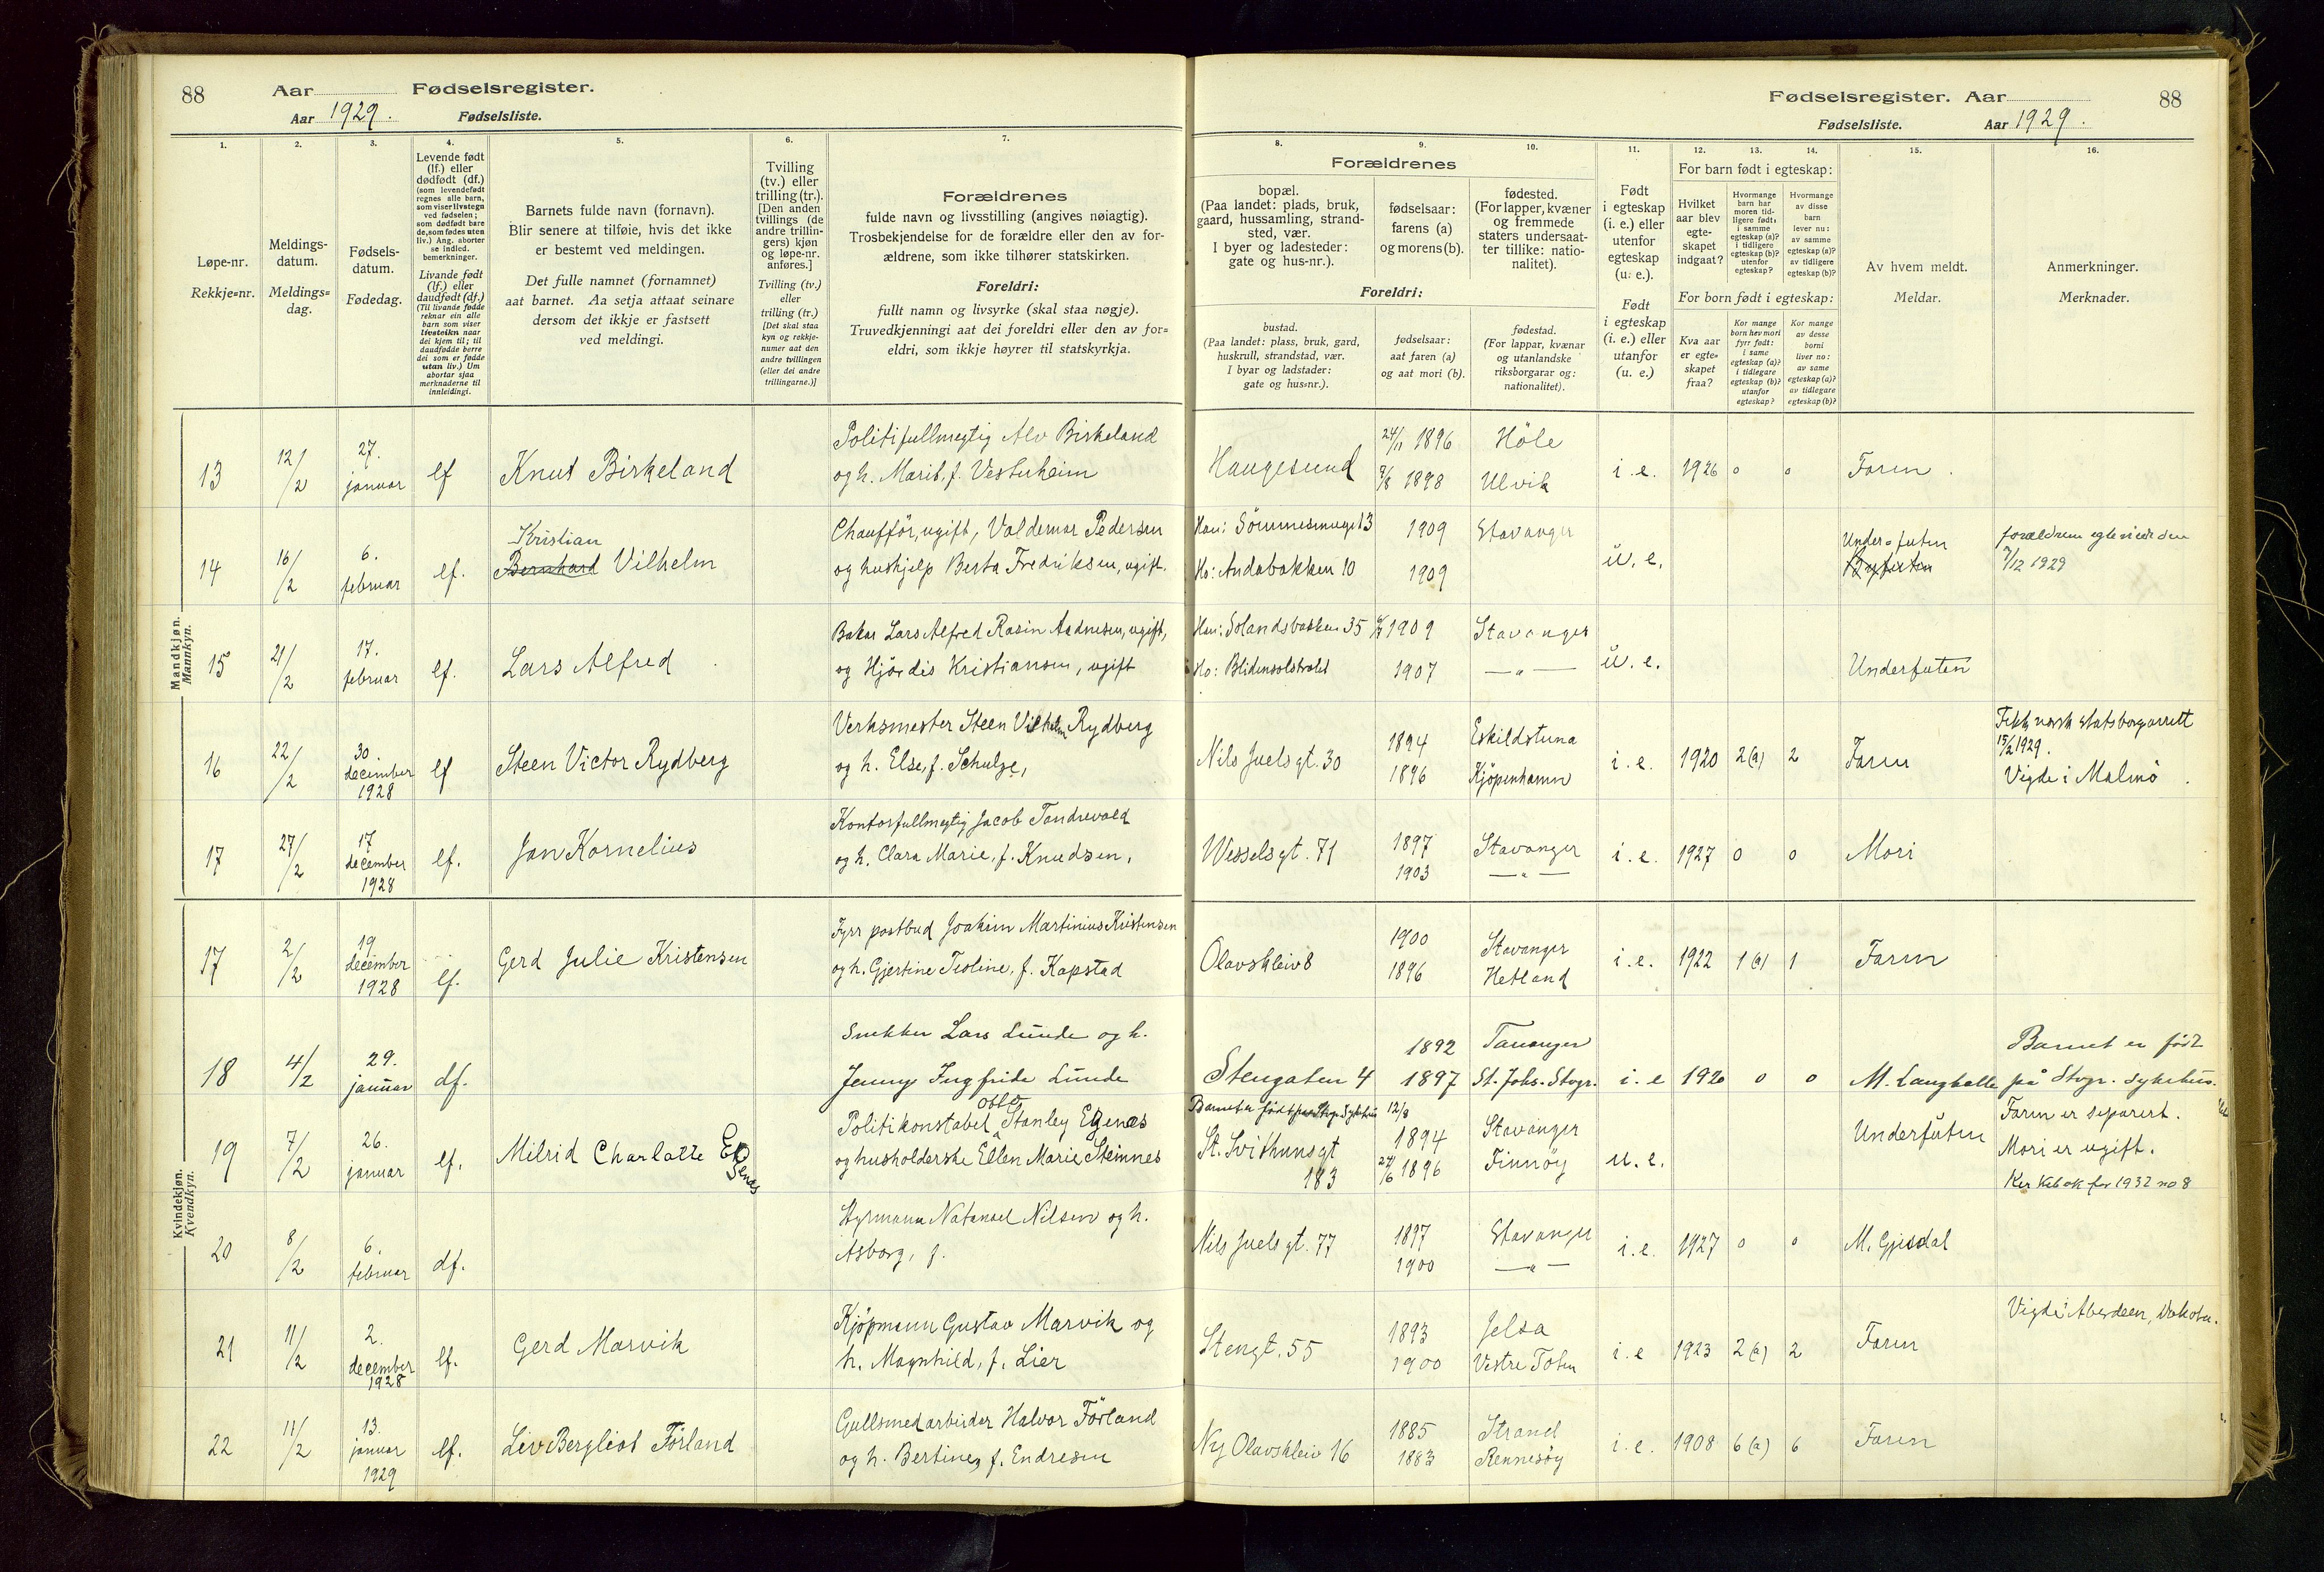 88 Aar Fødselsregister.
Aar 1929. Fødselsliste.
1. 2. 3. 4. 5. 6. 7.
Løpe-nr.
Rekkje=nr.
Meldings-
datum.
Meldings=
dag.
Fødsels-
datum.
Fødedag.
Levende født
(lf.) eller
dødfødt (df.)
(som levendefødt
regnes alle barn,
som viser livstegn
ved fødselen;
som dødfødt bare
de, som fødes uten
liv.) Ang. aborter
se indled.
bemerkninger.
Livande født
(lf.) eller
daudfødt (df.)
(Til livande fødde
reknar ein alle
barn som viser
livsteikn naar
dei kjem til; til
daudfødde berre
dei som er fødde
utan liv.) Um
abortar sjaa
merknaderne til
innleidingi.
Barnets fulde navn (fornavn).
Blir senere at tilføie, hvis det ikke
er bestemt ved meldingen.
Det fulle namnet (fornamnet)
aat barnet. Aa setja attaat seinare
dersom det ikkje er fastsett
ved meldingi.
Tvilling
(tv.) eller
trilling (tr.).
[Den anden
tvillings (de
andre trillin-
gers) kjøn
og løpe-nr.
anføres.]
Tvilling (tv.)
eller
trilling (tr.)
[Det skal staa
kyn og rekkje-
numer aat den
andre tvillingen
(eller dei andre
trillingarne.)]
Forældrenes
fulde navn og livsstilling (angives nøiagtig).
Trosbekjendelse for de forældre eller den av for-
ældrene, som ikke tilhører statskirken.
Foreldri:
fullt namn og livsyrke (skal staa nøgje).
Truvedkjenningi aat dei foreldri eller den av for=
eldri, som ikkje høyrer til statskyrkja.
Fødselsregister. Aar 88
Fødselsliste. Aar 1929.
8. 9. 10. 11. 12. 13. 14. 15. 16.
Forældrenes
bopæl.
(Paa landet: plads, bruk,
gaard, hussamling, strand-
sted, vær.
I byer og ladesteder:
gate og hus-nr.).
fødselsaar:
farens (a)
og morens (b).
fødested.
(For lapper, kvæner
og fremmede
staters undersaat-
ter tillike: natio-
nalitet).
Foreldri:
bustad.
(Paa landet: plass, bruk, gard,
huskrull, strandstad, vær.
I byar og ladstader:
gate og hus=nr.).
fødselsaar:
aat faren (a)
og aat mori (b).
fødestad.
(For lappar, kvænar
og utanlandske
riksborgarar og:
nationalitet).
Født
i egteskap
(i. e.) eller
utenfor
egteskap
(u. e.).
Født
i egteskap
(i. e.) eller
utanfor
(u. e.)
For barn født i egteskap:
Hvilket
aar blev
egte-
skapet
indgaat?
Hvormange
barn har
moren tid-
ligere født:
i samme
egteskap (a)?
i tidligere
egteskap (b)?
utenfor
egteskap?
Hvormange
av disse
barn
lever nu:
av samme
egteskap (a)?
av tidligere
egteskap (b)?
For born født i egteskap:
Kva aar
er egte=
skapet
fraa?
Kor mange
born hev mori
fyrr født:
i same
egteskap (a)?
i tidlegare
egteskap (b)?
utanfor
egteskap?
Kor mange
av desse
borni
liver no:
av same
egteskap (a)?
av tidlegare
egteskap (b)?
Av hvem meldt.
Meldar.
Anmerkninger.
Merknader.
Mandkjøn.
Mannkyn.
13 12/2 27. januar lf Knut Birkeland
Politifullmegtig Alv Birkeland
og h. Marit, f. Vesterheim
Haugesund 24/11 1896 Höle
1898 Ulvik
i. e. 1926 0 0 Faren.
14 16/2 6. februar lf. Kristian
Bernhard Vilhelm
Chaufför, ugift, Valdemar Pedersen
og hushjelp Berta Fredriksen, ugift.
Han: 13 1909 Stavanger
Ho: Andabakken 10 1909
u. e. Underfuten
Byfuten
foreldrene egteviede den
7/12 1929
15 21/2 17. februar lf. Lars Alfred
Baker Lars Alfred Rasin Aadnesen, ugift,
og Hjördis Kristiansen, ugift
Han: Solandsbakken 35 1909 Stavanger
Ho: Blidensolstredet 1907 — " —
u. e. Underfuten
16 22/2 30. december 1928 lf Steen Victor Rydberg
Verksmester Steen Vilhelm Rydberg
og h. Else, f. Schulze,
Nils Juels gt. 30 1894 Eskildstuna
1896 Kjöpenhamn
i. e. 1920 2 (a) 2 Faren
Fekk norsk statsborgarrett
15/2 1929.
Vigde i Malmö.
17 27/2 17 december 1928 lf. Jan Kornelius
Kontorfullmegtig Jacob Tandrevold
og h. Clara Marie, f. Knudsen,
Wessels gt. 71 1897 Stavanger
1903 — " —
i. e. 1927 0 0 Mori
Kvindekjøn.
Kvendkyn.
17 2/2 19 december 1928 lf. Gerd Julie Kristensen
Fyrr postbud Joakim Martinius Kristensen
og h. Gjertine Teoline, f. Kapstad
Olavskleiv 8 1900 Stavanger
1896 Hetland
i. e. 1922 1 (a) 1 Faren
18 4/2 29. januar df.
Snekker Lars Lunde og h.
Jenny Ingfride Lunde
Stengaten 4 1892 Tananger
1897 St. Johs. Stvgr.
i. e 1920 0 0 M. Langhelle
Barnet er født
på Stvgr. sykehus.
19 7/2 26. januar lf. Milrid Charlotte Egenes
Politikonstabel Otto Stanley Egenes
og husholderske Ellen Marie Steinnes
Barnet er født på Stvgr Sykehus
St. Svithunsgt
183
12/8 1894 Stavanger
24/6 1896 Finnöy
u. e. Underfuten
Faren er separert.
Mori er ugift.
for 1932 no 8
20 8/2 6. februar df.
Styrmann Natanael Nilsen og h.
Asborg, f.
Nils Juels gt. 77 1897 Stavanger
1900 — " —
i. e. 1927 0 0 M. Gjesdal
21 11/2 2. december 1928 lf. Gerd Marvik
Kjöpmann Gustav Marvik og
h. Magnhild, f. Lier
Stengt. 55 1893 Jelsa
1900 Vestre Toten
i. e 1923 2 (a) 2 Faren
Vigde i Aberdeen, Dakota.
22 11/2 13. januar 1929 lf. Liv Bergliot Förland
Gullsmedarbeider Halvor Förland
og h. Bertine, f. Endresen
Ny Olavskleiv 16 1885 Strand
1883 Rennesöy
i. e. 1908 6 (a) 6 Faren